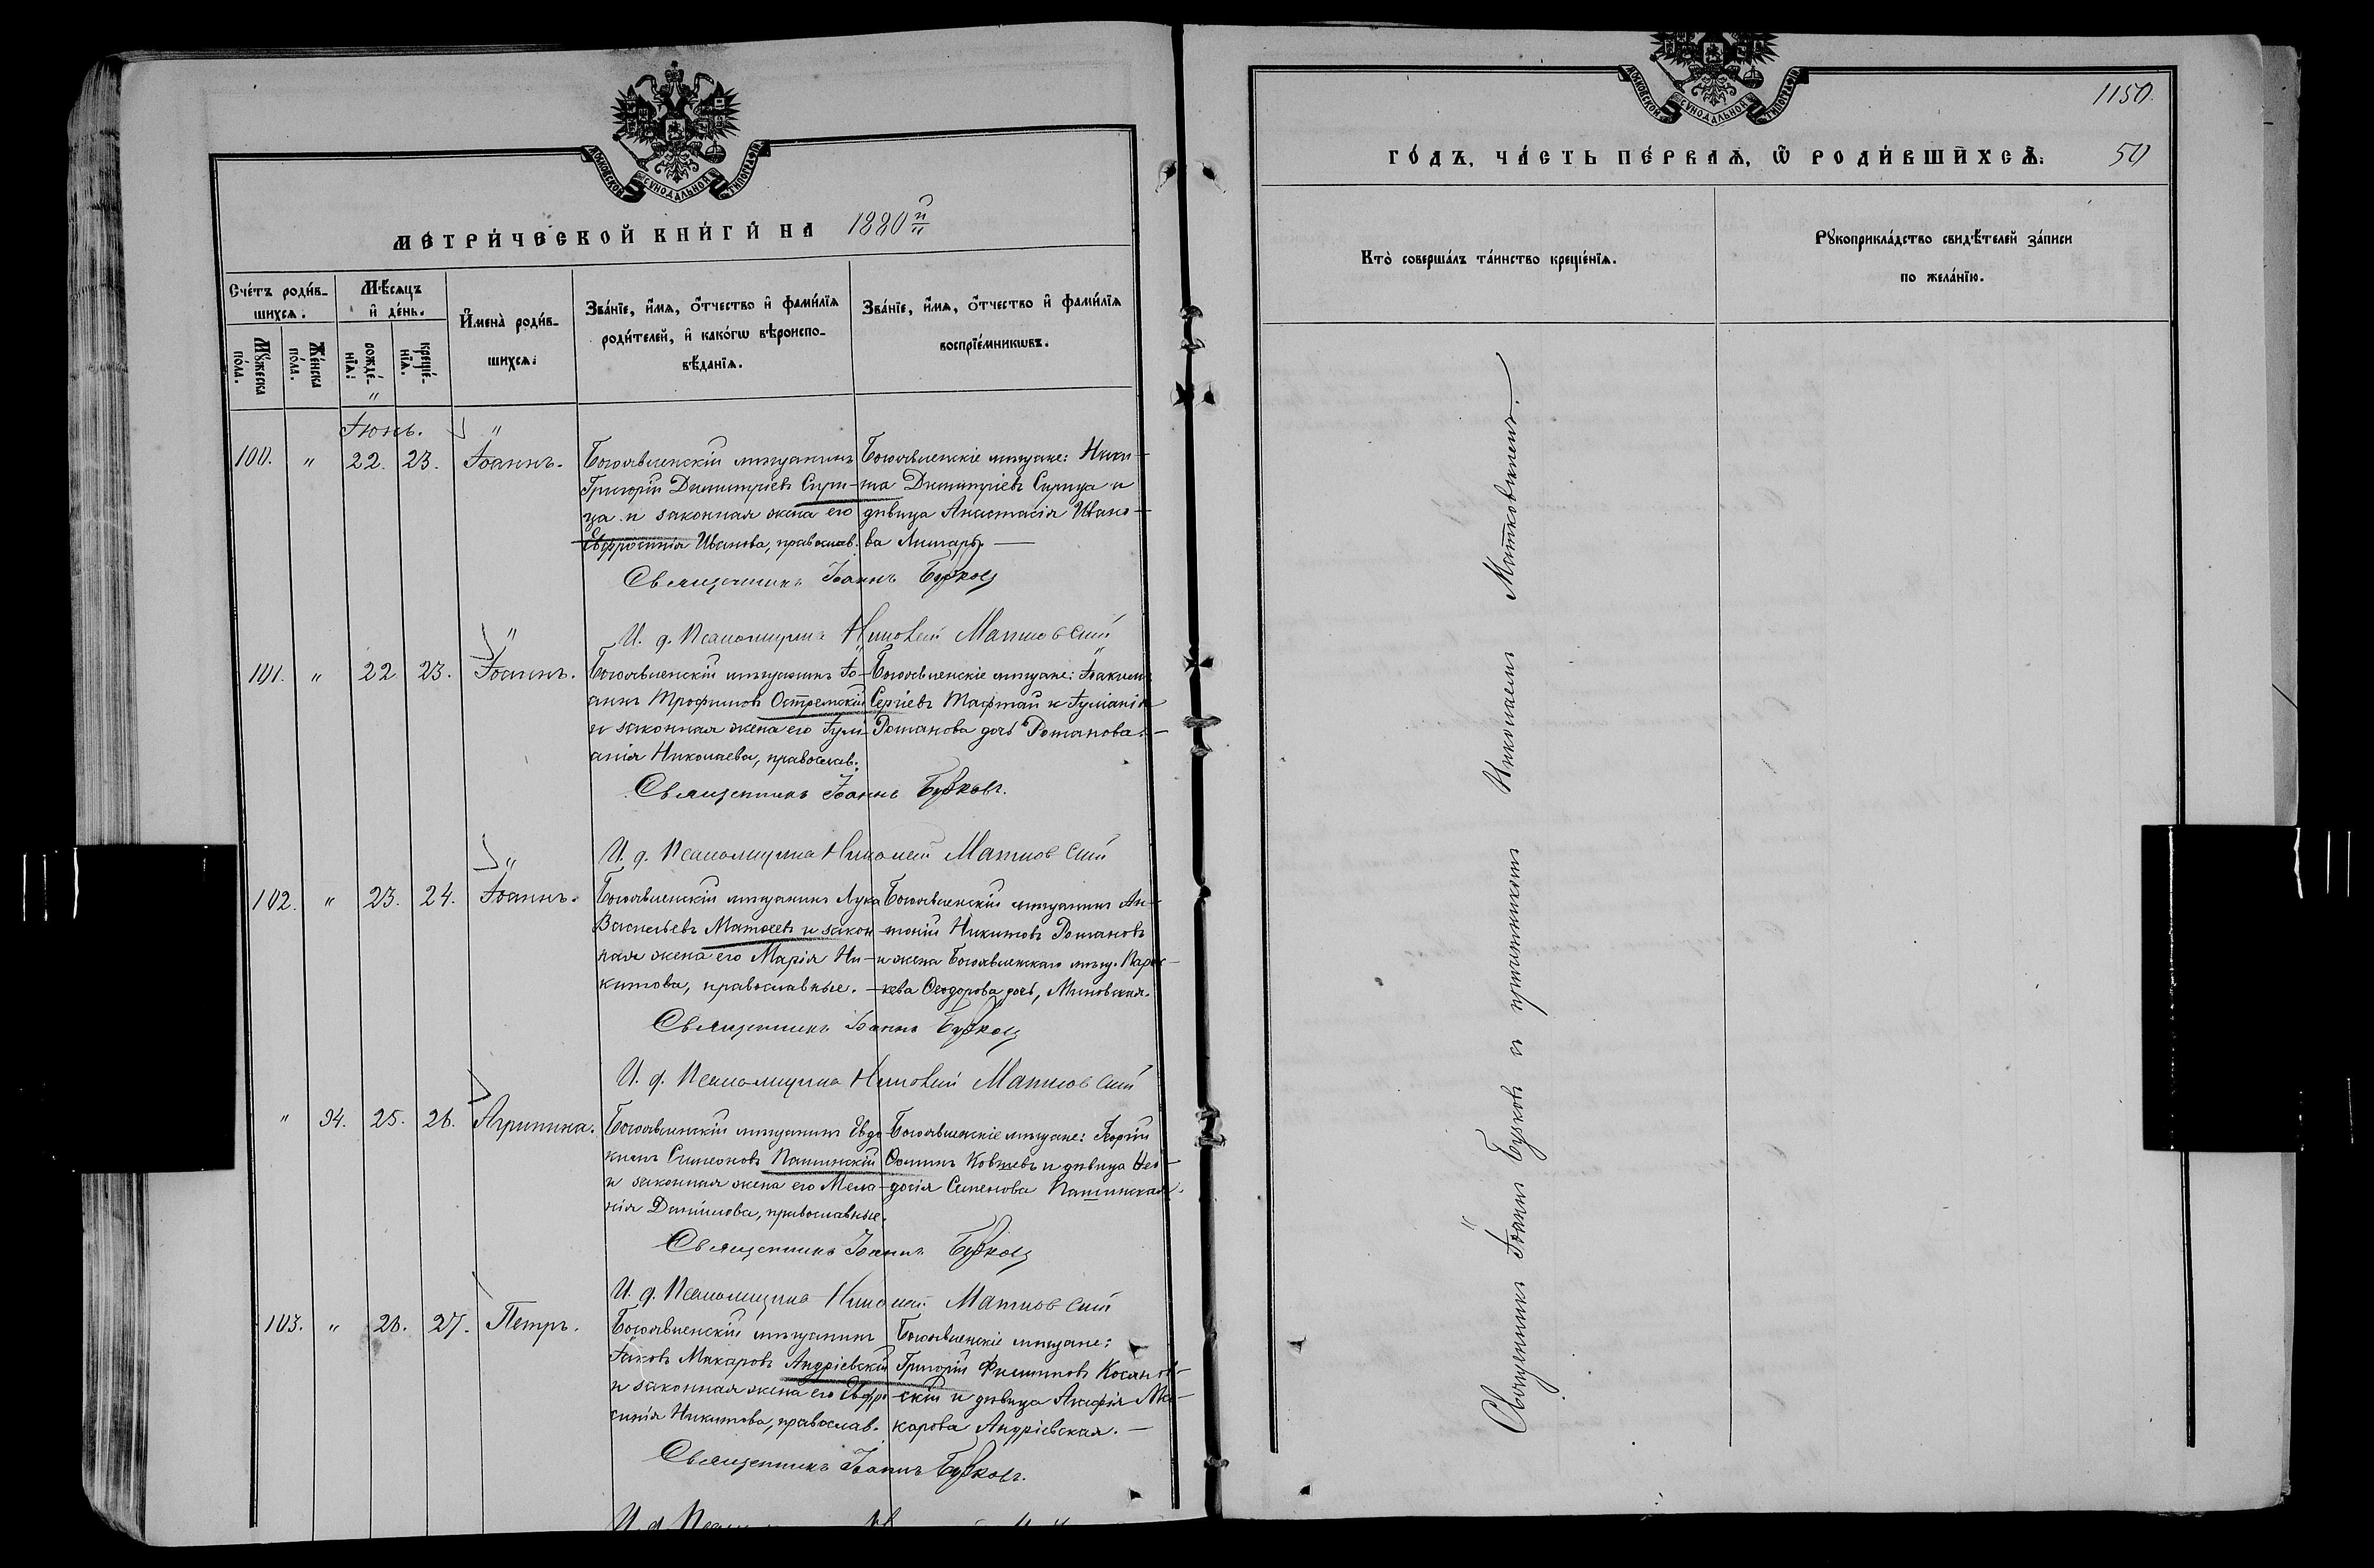 МОСКОВСКОЙ СѴНОДАЛЬНОЙ ТИПОГРАФІИ
МЕТРИ́ЧЕСКОЙ КНИ́ГИ НА 1880й
Сче́тъ роди́в-
шихся.
Мꙋ́жеска
по́ла.
Же́нска
по́ла.
Мѣ́сяцъ
и҆ де́нь.
рожде́-
нїя.
креще́-
нїя.
И҆мена̀ роди́в-
шихся.
Зва́нїе, и҆́мя, ѻ҆́тчество и҆ фами́лїя
роди́телей, и҆ како́гѡ вѣроиспо-
вѣ́данїя.
Зва́нїе, и҆́мя, ѻ҆́тчество и҆ фами́лїя
воспрїе́мникѡвъ.
Іюнь.
100. " 22. 23. Іоаннъ.
Богоявленскій мѣщанинъ
Григорій Димитріевъ Сири-
ца и законная жена его
Евфросинія Иванова, православ.
Богоявленскіе мѣщане: Ники-
та Димитріевъ Сирица и
дѣвица Анастасія Ивано-
ва
Священникъ Іоаннъ Бужковъ
И. д. Псаломщика Николай Матковскій
101. " 22 23. Іоаннъ.
Богоявленскій мѣщанинъ Іо-
аннъ Трофимовъ Остремскій
и законная жена его Іулі-
анія Николаева, православ.
Богоявленскіе мѣщане: Іоакимъ
Сергіевъ Мафтай и Іуліанія
Романова дочь Романова.
Священникъ Іоаннъ Бужковъ.
И. д. Псаломщика Николай Матковскій
102. " 23. 24. Іоаннъ.
Богоявленскій мѣщанинъ Лука
Васильевъ Матеевъ и закон-
ная жена его Марія Ни-
китова, православные.
Богоявленскій мѣщанинъ Ан-
тоній Никитовъ Романовъ
и жена Богоявленскаго мѣщ. Парас-
кева Ѳеодорова дочь,
Священникъ Іоаннъ Бужковъ
И. д. Псаломщика Николай Матковскій
" 94. 25. 26. Агрипина.
Богоявленскій мѣщанинъ Евдо-
кимъ Симеоновъ Пашинскій
и законная жена его Мела-
нія Даніилова, православные.
Богоявленскіе мѣщане: Георгій
Ѳоминъ Ковшевъ и дѣвица Ѳео-
досія Семенова Пашинская.
Священникъ Іоаннъ Бужковъ
И. д. Псаломщика Николай Матковскій
103. " 26. 27. Петръ.
Богоявленскій мѣщанинъ
Іаковъ Макаровъ Андріевскій
и законная жена его Евфро-
синія Никитова, православ.
Богоявленскіе мѣщане:
Григорій Филиповъ Косянов-
скій и дѣвица Агафія Ма-
карова Андріевская.
Священникъ Іоаннъ Бужковъ.
И. д.
МОСКОВСКОЙ СѴНОДАЛЬНОЙ ТИПОГРАФІИ
1150.
ГО́ДЪ, ЧА́СТЬ ПЕ́РВАЯ, Ѡ҆ РОДИ́ВШИХСЯ.
50
Кто̀ соверша́лъ та́инство креще́нїя.
Рꙋкоприкла́дство свидѣ́телей за́писи
по жела́нїю.
Священникъ Іоаннъ Бужковъ и причетникомъ Николаемъ Матковскимъ.